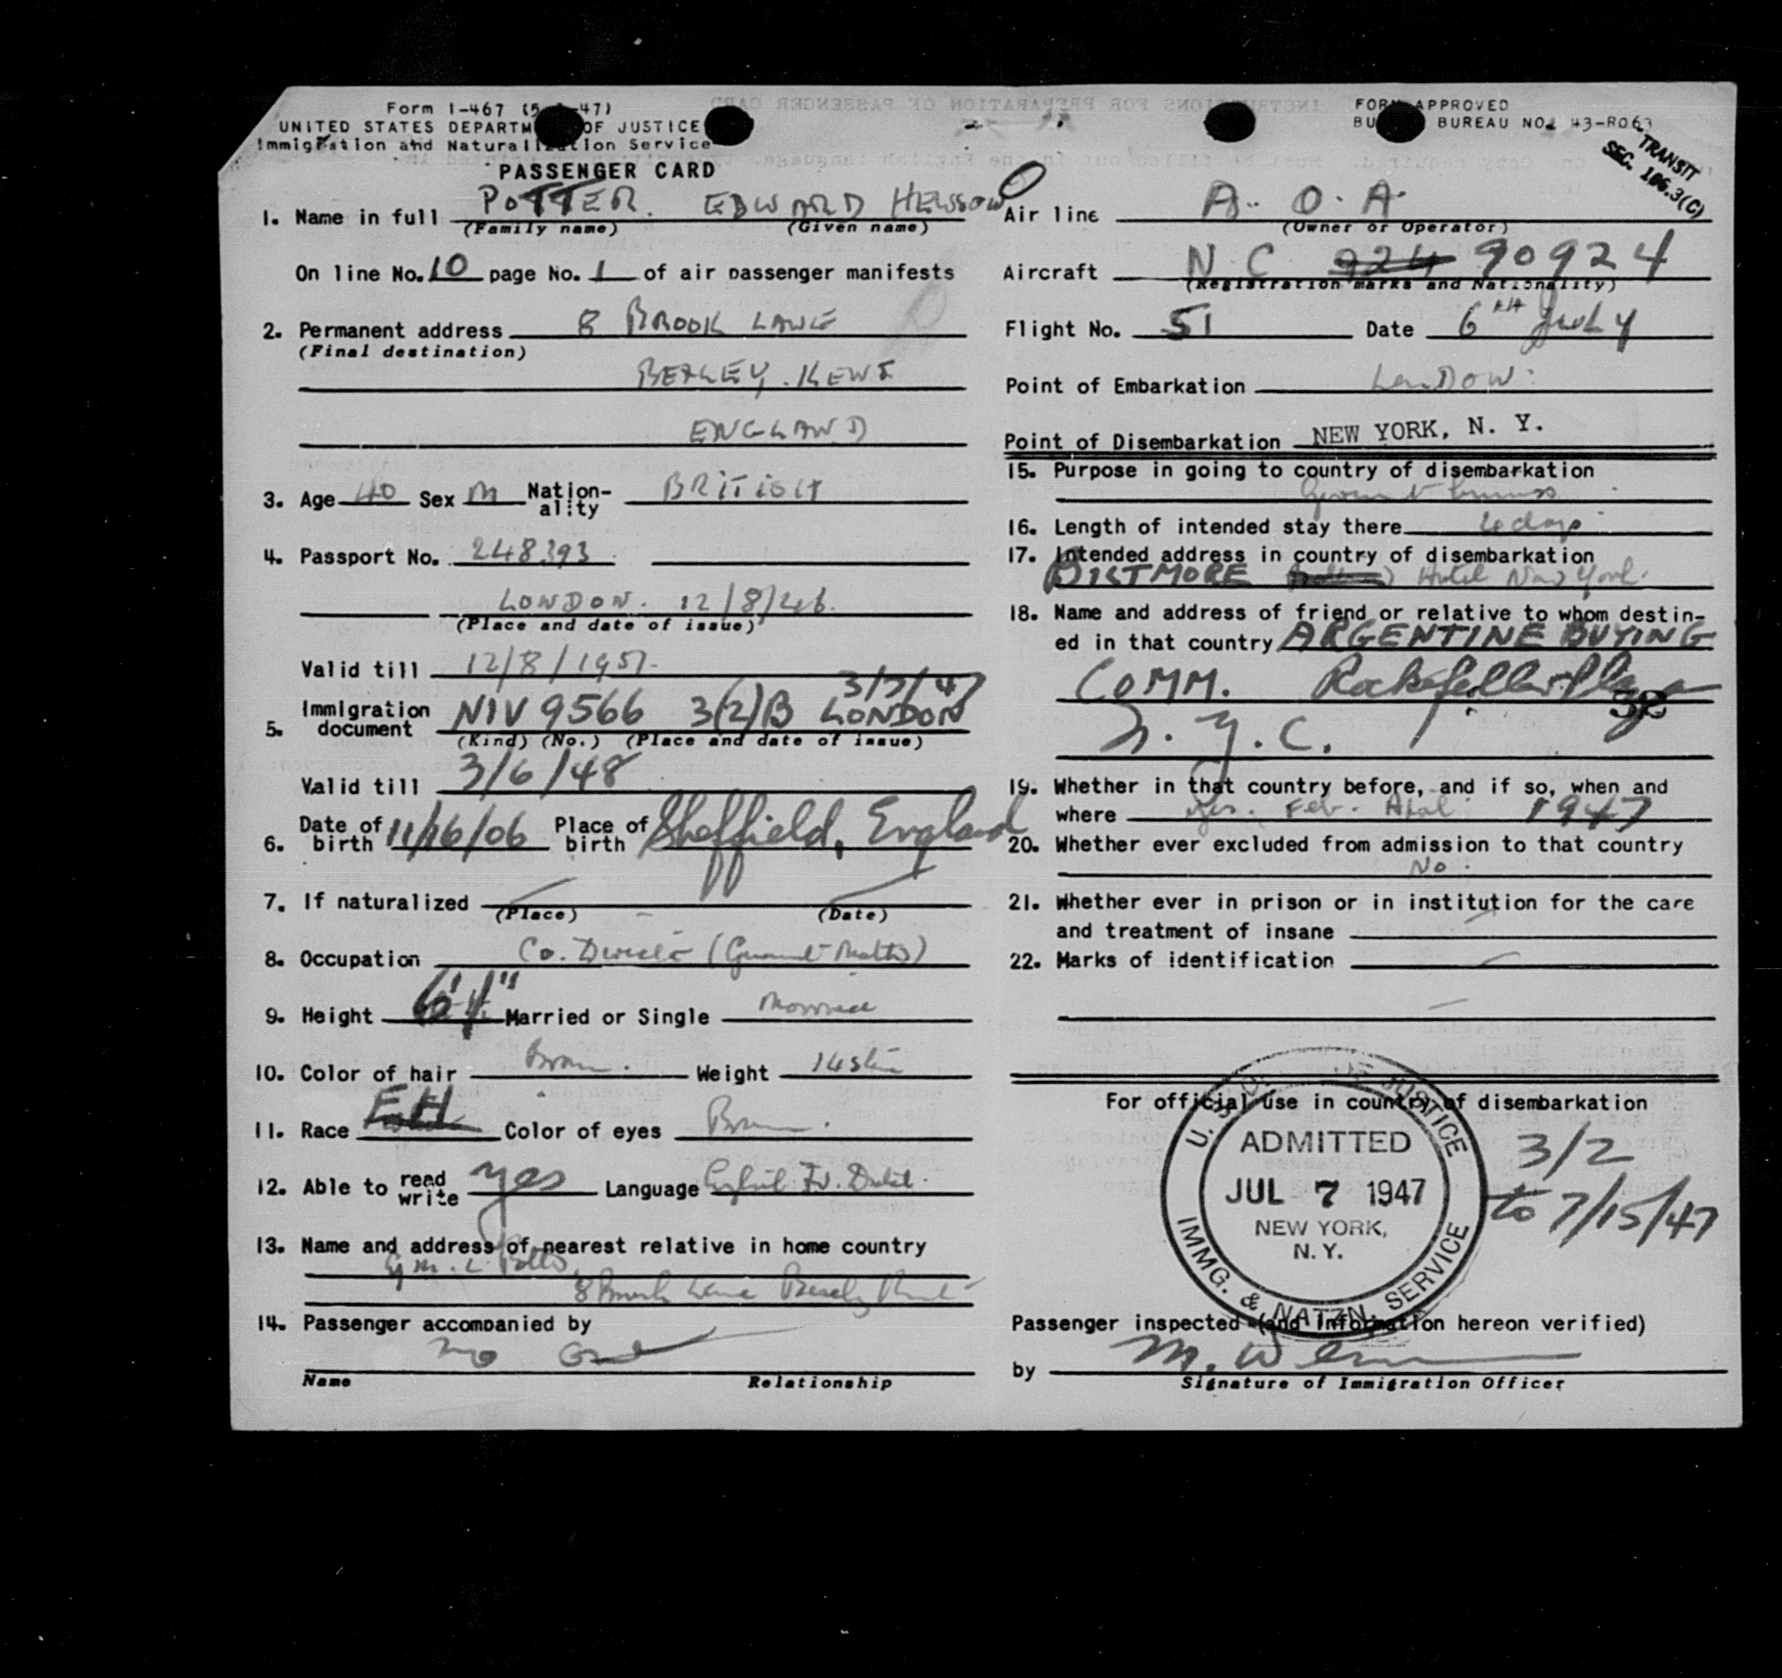 Form I-467 (5 47)
UNITED STATES DEPARTM OF JUSTICE
Immigration and Naturalization Service
PASSENGER CARD
1. Name in full POTTER. EDWARD HEWSON
(Family name) (Given name)
On line No. 10 page No. 1 of air passenger manifests
2. Permanent address 8 BROOK LANE
(Final destination)
BEXLEY. KENT
ENGLAND
3. Age 40 Sex M Nation-ality BRITISH
4. Passport No. 248393
LONDON. 12/8/46.
(Place and date of issue)
Valid till 12/8/1951.
3/7/47
5. Immigration document NIV 9566 3(2)B LONDON
(Kind) (No.) (Place and date of issue)
Valid till 3/6/48
6. Date of birth 11/16/06 Place of birth Sheffield, England
7. If naturalized
(Place) (Date)
8. Occupation Co. Director
9. Height 6'1" Married or Single Married
10. Color of hair Brown. Weight 14 st
11. Race EH Color of eyes Brown.
12. Able to read write yes Language English Fr.
13. Name and address of nearest relative in home country
8 Brook Lane Bexley Kent
14. Passenger accompanied by
no one
Name Relationship
FORM APPROVED
BU BUREAU NO. 43-R063
TRANSIT
SEC. 106.3(C)
Air line A. O. A.
(Owner or Operator)
Aircraft N C 924 90924
(Registration marks and Nationality)
Flight No. 51 Date 6TH July
Point of Embarkation London.
Point of Disembarkation NEW YORK, N. Y.
15. Purpose in going to country of disembarkation
business
16. Length of intended stay there days
17. Intended address in country of disembarkation
BILTMORE Hotel New York.
18. Name and address of friend or relative to whom destin-
ed in that country ARGENTINE BUYING
COMM. Rockefeller Plaza
N.Y.C.
19. Whether in that country before, and if so, when and
where Yes. Feb. 1947
20. Whether ever excluded from admission to that country
No.
21. Whether ever in prison or in institution for the care
and treatment of insane
22. Marks of identification
For official use in country of disembarkation
U.S. JUSTICE
ADMITTED
JUL 7 1947
NEW YORK,
N.Y.
IMMG. & NATZN. SERVICE
3/2
to 7/15/47
Passenger inspected (and information hereon verified)
by
Signature of Immigration Officer